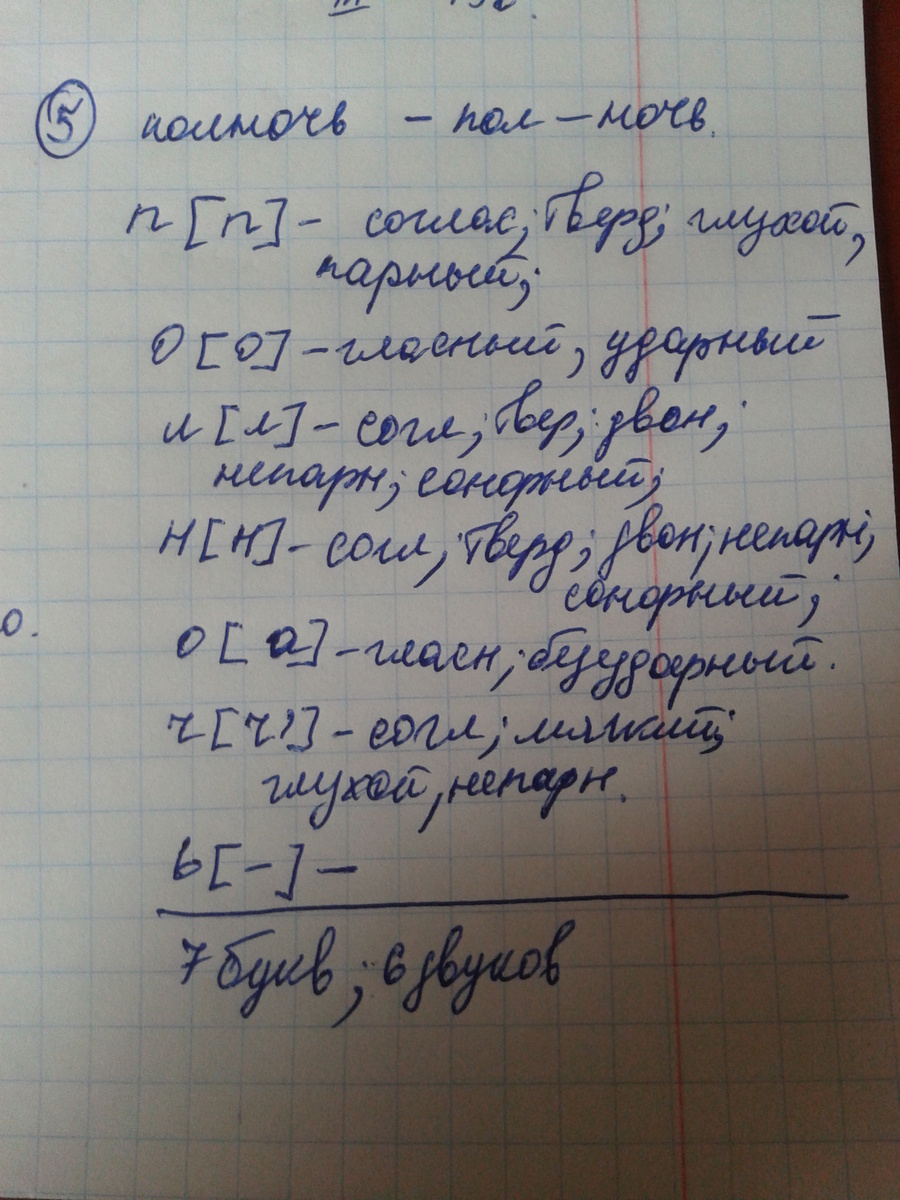 5 полночь - пол - ночь.
п [п] - соглас; тверд; глухой,
парный;
о [о] - гласный, ударный
л [л] - согл; твер; звон;
непарн; сонорный;
н [н] - согл; тверд; звон; непарн;
сонорный;
о.
о [а] - гласн; безударный.
ч [ч'] - согл; мягкий;
глухой, непарн.
ь [-] -
7 букв; 6 звуков